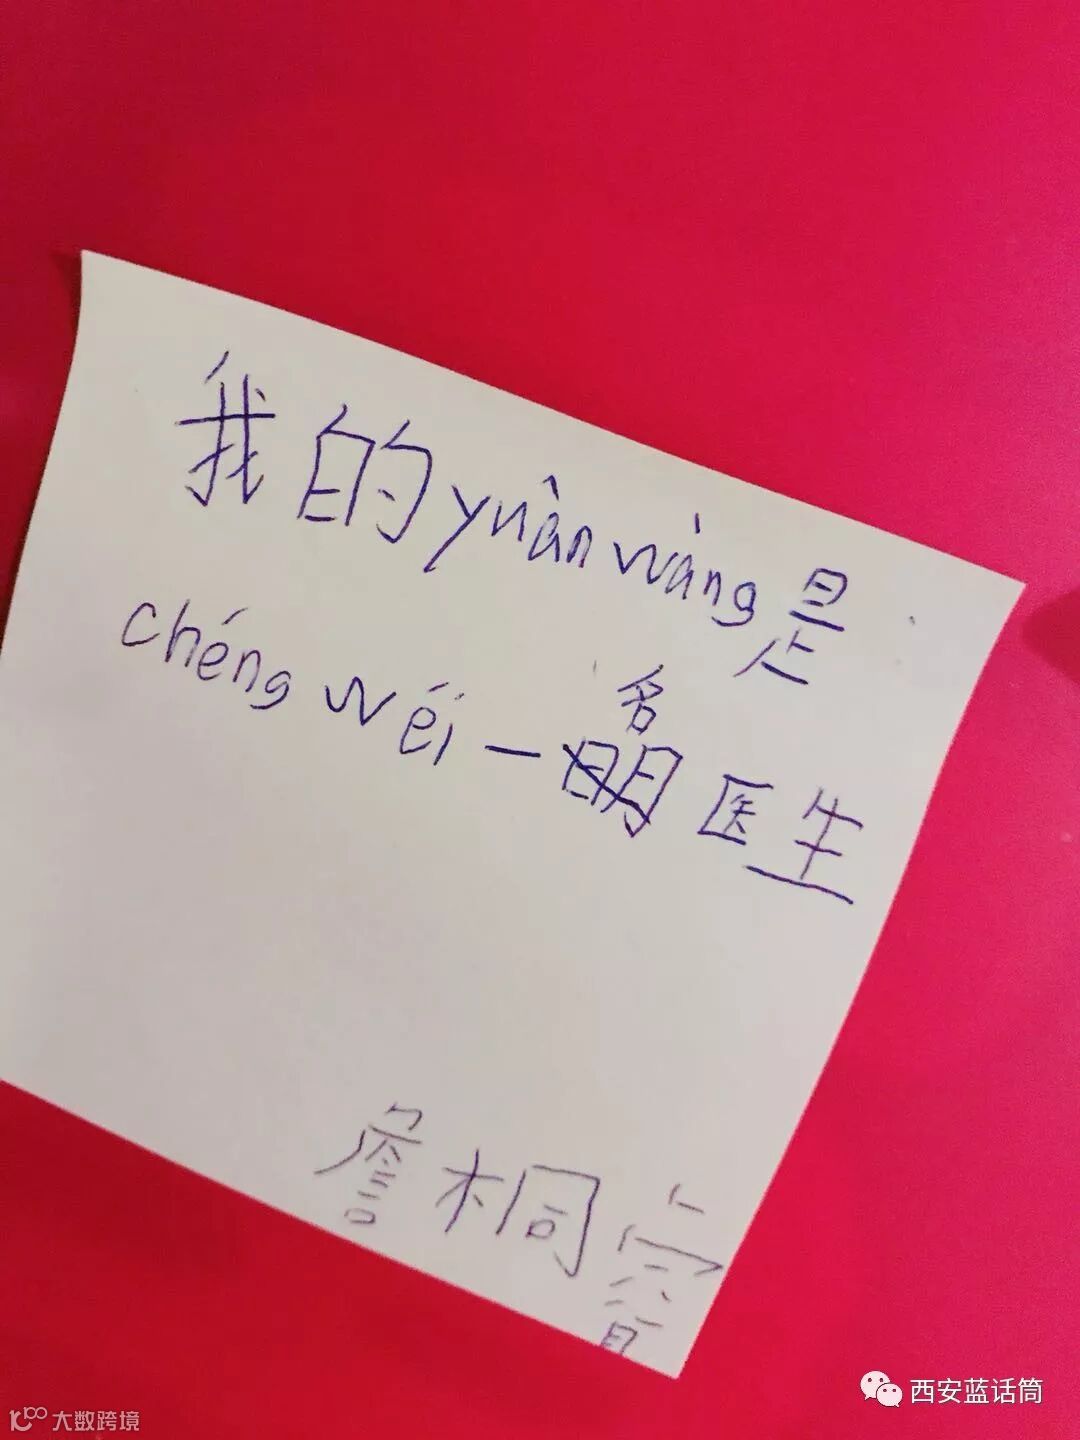 我的yuàn wàng是
chéng wéi一名医生
詹桐
西安蓝话筒
大数跨境